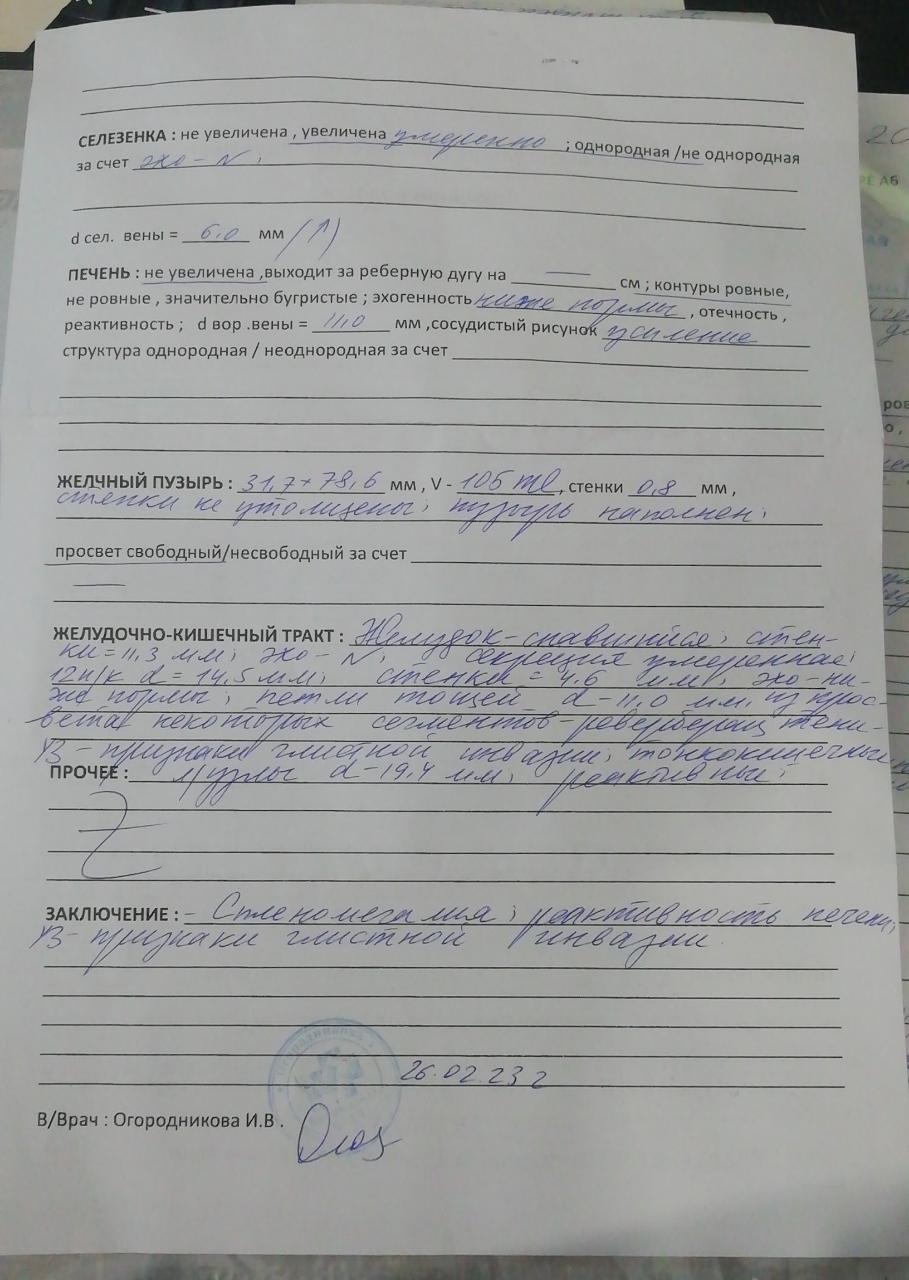 СЕЛЕЗЕНКА : не увеличена , увеличена умеренно ; однородная /не однородная
за счет эхо - N ;
d сел. вены = 6,0 мм (↑)
ПЕЧЕНЬ : не увеличена ,выходит за реберную дугу на — см ; контуры ровные,
не ровные , значительно бугристые ; эхогенность ниже нормы , отечность ,
реактивность ; d вор .вены = 11,0 мм ,сосудистый рисунок усиление
структура однородная / неоднородная за счет
ЖЕЛЧНЫЙ ПУЗЫРЬ : 31,7 + 78,6 мм , V - 105 ml , стенки 0,8 мм ,
стенки не утолщены; пузырь наполнен;
просвет свободный/несвободный за счет
—
ЖЕЛУДОЧНО-КИШЕЧНЫЙ ТРАКТ : Желудок - спавшийся; стен-
ки = 11,3 мм; эхо - N; секреция умеренная;
12п/к d = 14,5 мм; стенки = 4,6 мм; эхо - ни-
же нормы; петли тощей d - 11,0 мм, из прос-
вета некоторых сегментов - ревербераци тени-
УЗ - признаки глистной инвазии; тонкокишечные
ПРОЧЕЕ : л/узлы d - 19,4 мм; реактивные;
ЗАКЛЮЧЕНИЕ : - Спленомегалия; реактивность печени;
УЗ - признаки глистной инвазии.
26.02.23 г
В/Врач : Огородникова И.В .